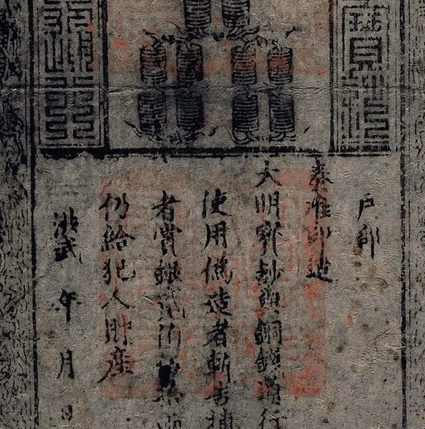 寶鈔
通行
戶部
奏准印造
大明寶鈔與銅錢通行
使用偽造者斬告捕
者賞銀貳伯兩
仍給犯人財產
洪武 年 月 日